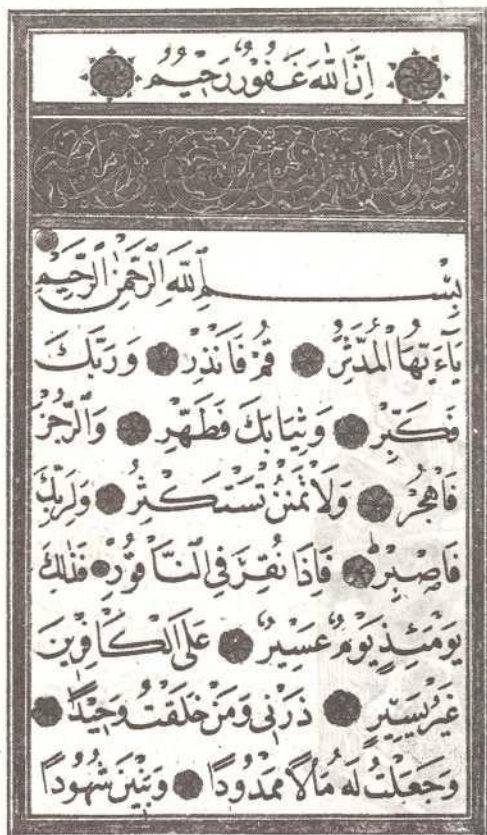 اِنَّ اللّٰهَ غَفُورٌ رَحِيمٌ
بِسْمِ اللّٰهِ الرَّحْمٰنِ الرَّحِيمِ
يَآءَيُّهَا الْمُدَّثِّرُ قُمْ فَاَنْذِرْ وَرَبَّكَ
فَكَبِّرْ وَثِيَابَكَ فَطَهِّرْ وَالرُّجْزَ
فَاهْجُرْ وَلَا تَمْنُنْ تَسْتَكْثِرُ وَلِرَبِّكَ
فَاصْبِرْ فَاِذَا نُقِرَ فِي النَّاقُورِ فَذٰلِكَ
يَوْمَئِذٍ يَوْمٌ عَسِيرٌ عَلَى الْكَافِرِينَ
غَيْرُ يَسِيرٍ ذَرْنِي وَمَنْ خَلَقْتُ وَحِيدًا
وَجَعَلْتُ لَهُ مَالًا مَمْدُودًا وَبَنِينَ شُهُودًا